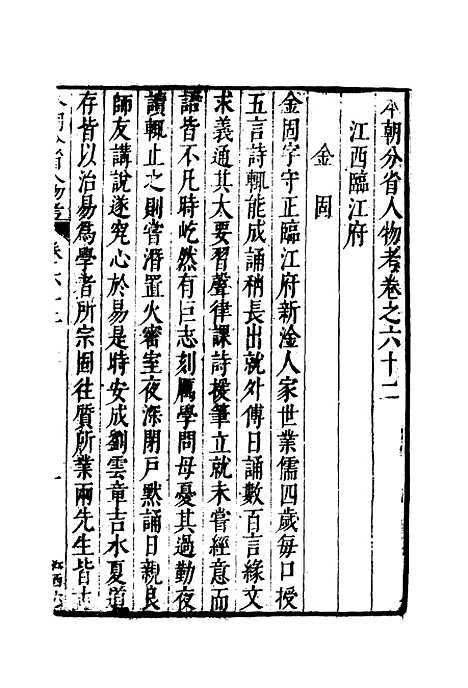 本朝分省人物考卷之六十二
江西臨江府
金固
金固字守正臨江府新淦人家世業儒四歲每口授
五言詩輒能成誦稍長出就外傅日誦數百言緣文
求義通其大要習聲律課詩援筆立就未嘗經意而
語皆不凡時屹然有巨志刻厲學問母憂其過勤夜
讀輒止之則嘗潛置火密室夜深閉戶默誦日親良
師友講說遂究心於易是時安成劉雲章吉水夏道
存皆以治易爲學者所宗固往質所業兩先生皆大